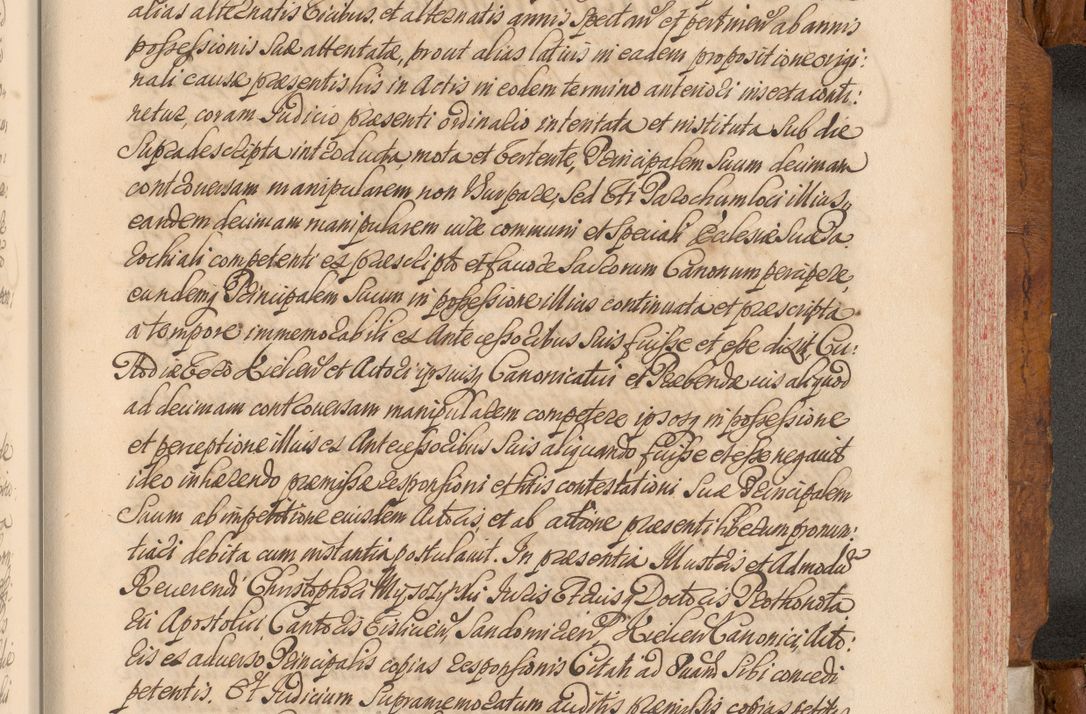 alias alternatis Civibus, et alternatis annis spectan et pertinen ab annis
possessionis suæ attentatæ, prout alias latius in eadem propositione origi:
nali causæ præsentis his in Actis in eodem termino anteriori inserta conti:
netur, coram Judicio præsenti ordinario intentata et instituta sub die
supradescripta introducta, mota et vertente, Principalem suum decimam
controversam manipularem non usurpare, sed uti Parochum loci illius,
eandem decimam manipularem jure communi et speciali Ecclesiæ suæ Pa
rochiali competenti ex præscripto et favore Sacrorum Canonum percipere,
eundemq Principalem suum in possessione illius continuata et præscripta
a tempore immemorabili ex Antecessoribus suis fuisse et esse dixit. Cu:
stodiæ vero Kielcen et Actori ipsiusq Canonicatui et Præbendæ jus aliquod
ad decimam controversam manipularem competere ipsosq in possessione
et perceptione illius ex Antecessoribus suis aliquando fuisse et esse negavit
ideo inhærendo præmissæ responsioni et litis contestationi suæ Principalem
suum ab impetitione eiusdem Actoris, et ab actione præsenti liberum pronun:
tiari debita cum instantia postulavit. In præsentia Illustris et Admodu
Reverendi Christophori Juris Utriusq Doctoris Prothonota
rii Apostolici, Cantoris Sandomirien, Kielcen Canonici, Acto:
ris ex adverso Principalis copias responsionis Citati ad suam sibi concedi
petentis. Et Judicium supramemoratum auditis præmissis copias petitas